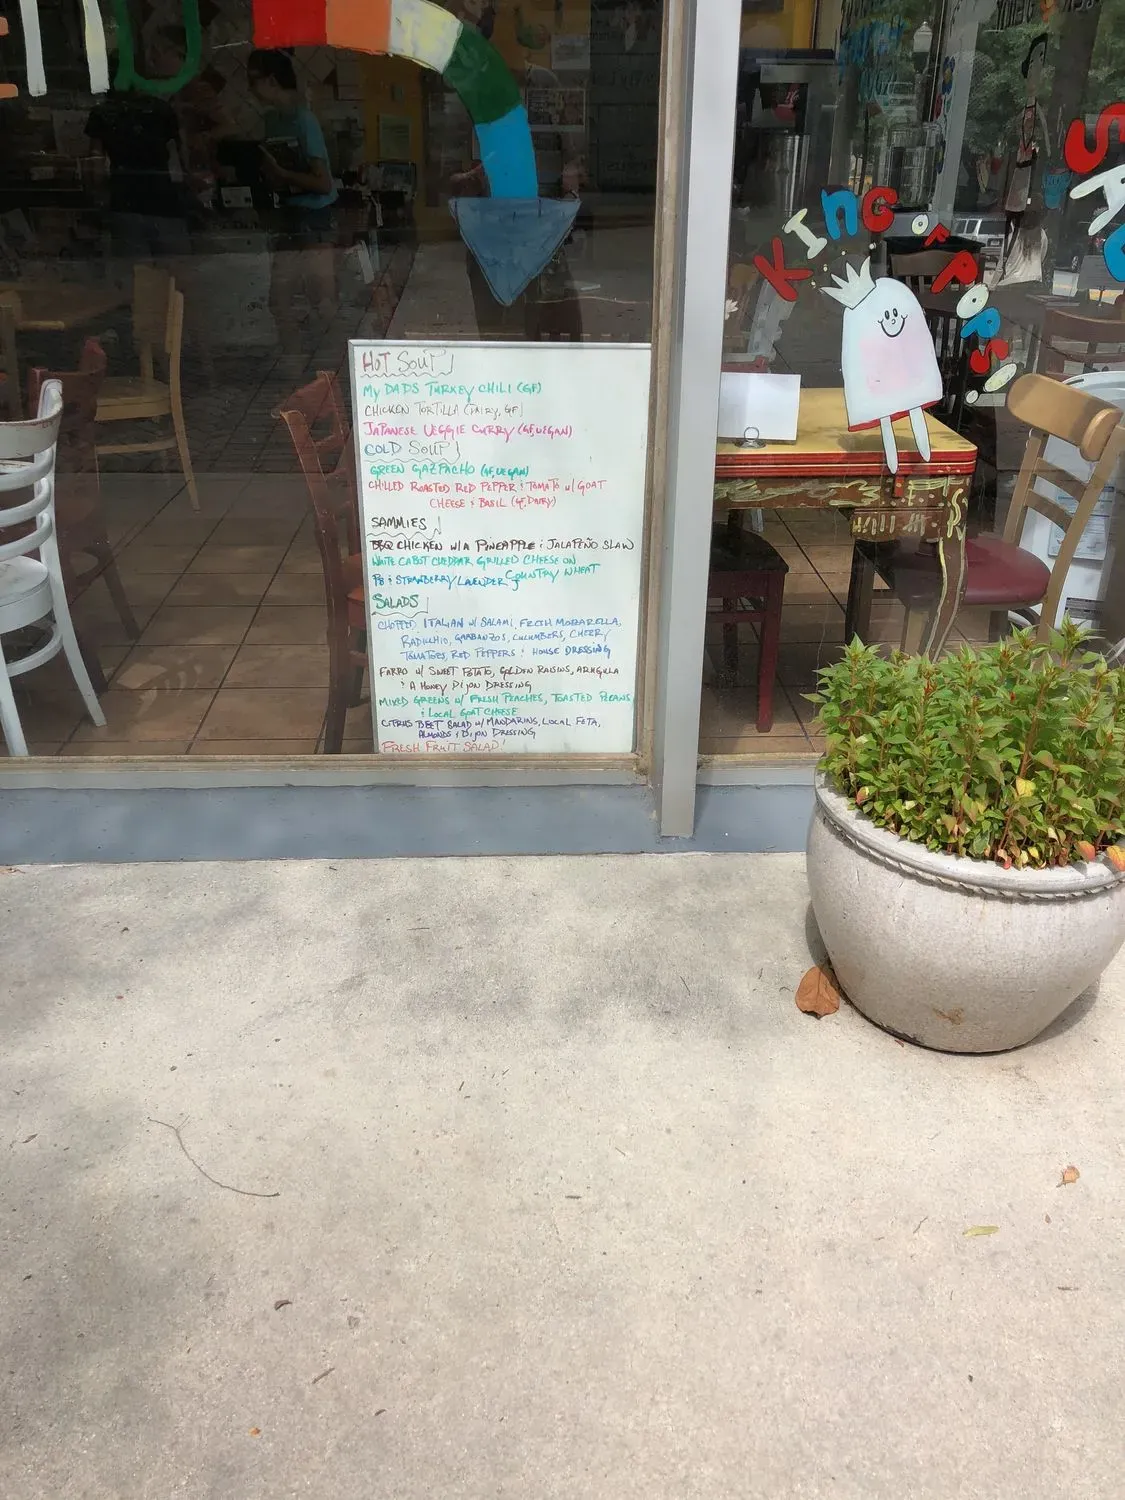 HOT SOUP!
MY DADS TURKEY CHILI (GF)
CHICKEN TORTILLA (DAIRY, GF)
JAPANESE VEGGIE CURRY (GF, VEGAN)
COLD SOUP!
GREEN GAZPACHO (GF, VEGAN)
CHILLED ROASTED RED PEPPER & TOMATO w/ GOAT
CHEESE & BASIL (GF, DAIRY)
SAMMIES!
BBQ CHICKEN W/A PINEAPPLE & JALAPEÑO SLAW
WHITE CABOT CHEDDAR GRILLED CHEESE ON
COUNTRY WHEAT
PB & STRAWBERRY/LAVENDER J
SALADS!
CHOPPED ITALIAN w/ SALAMI, FRESH MOZARELLA,
RADICCHIO, GARBANZOS, CUCUMBERS, CHERRY
TOMATOES, RED PEPPERS & HOUSE DRESSING
FARRO w/ SWEET POTATO, GOLDEN RAISINS, ARUGULA
& A HONEY DIJON DRESSING
MIXED GREENS w/ FRESH PEACHES, TOASTED PECANS
& LOCAL GOAT CHEESE
CITRUS BEET SALAD w/ MANDARINS, LOCAL FETA,
ALMONDS & DIJON DRESSING
FRESH FRUIT SALAD!
KING OF POPS!